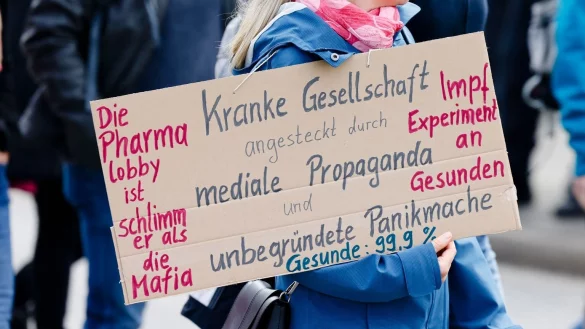 Die
Pharma
lobby
ist
schlimm
er als
die
Mafia
Kranke Gesellschaft
angesteckt durch
mediale Propaganda
und
unbegründete Panikmache
Gesunde: 99,9 %
Impf
Experiment
an
Gesunden